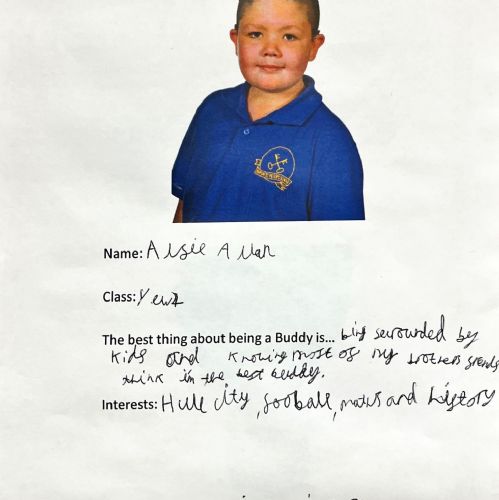 Name: Alsie Allan
Class: Yew2
The best thing about being a Buddy is... bing surrounded by
kids and knowing most of my brothers frends
think im the best buddy.
Interests: Hull city, fooball, maths and history